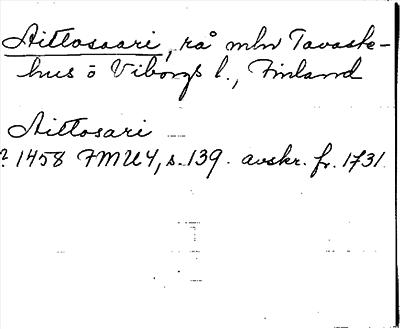 Aittosaari, rå mln Tavaste-
hus o Viborgs l., Finland
Aittosari
? 1458 FMU4, s. 139. avskr. fr. 1731.